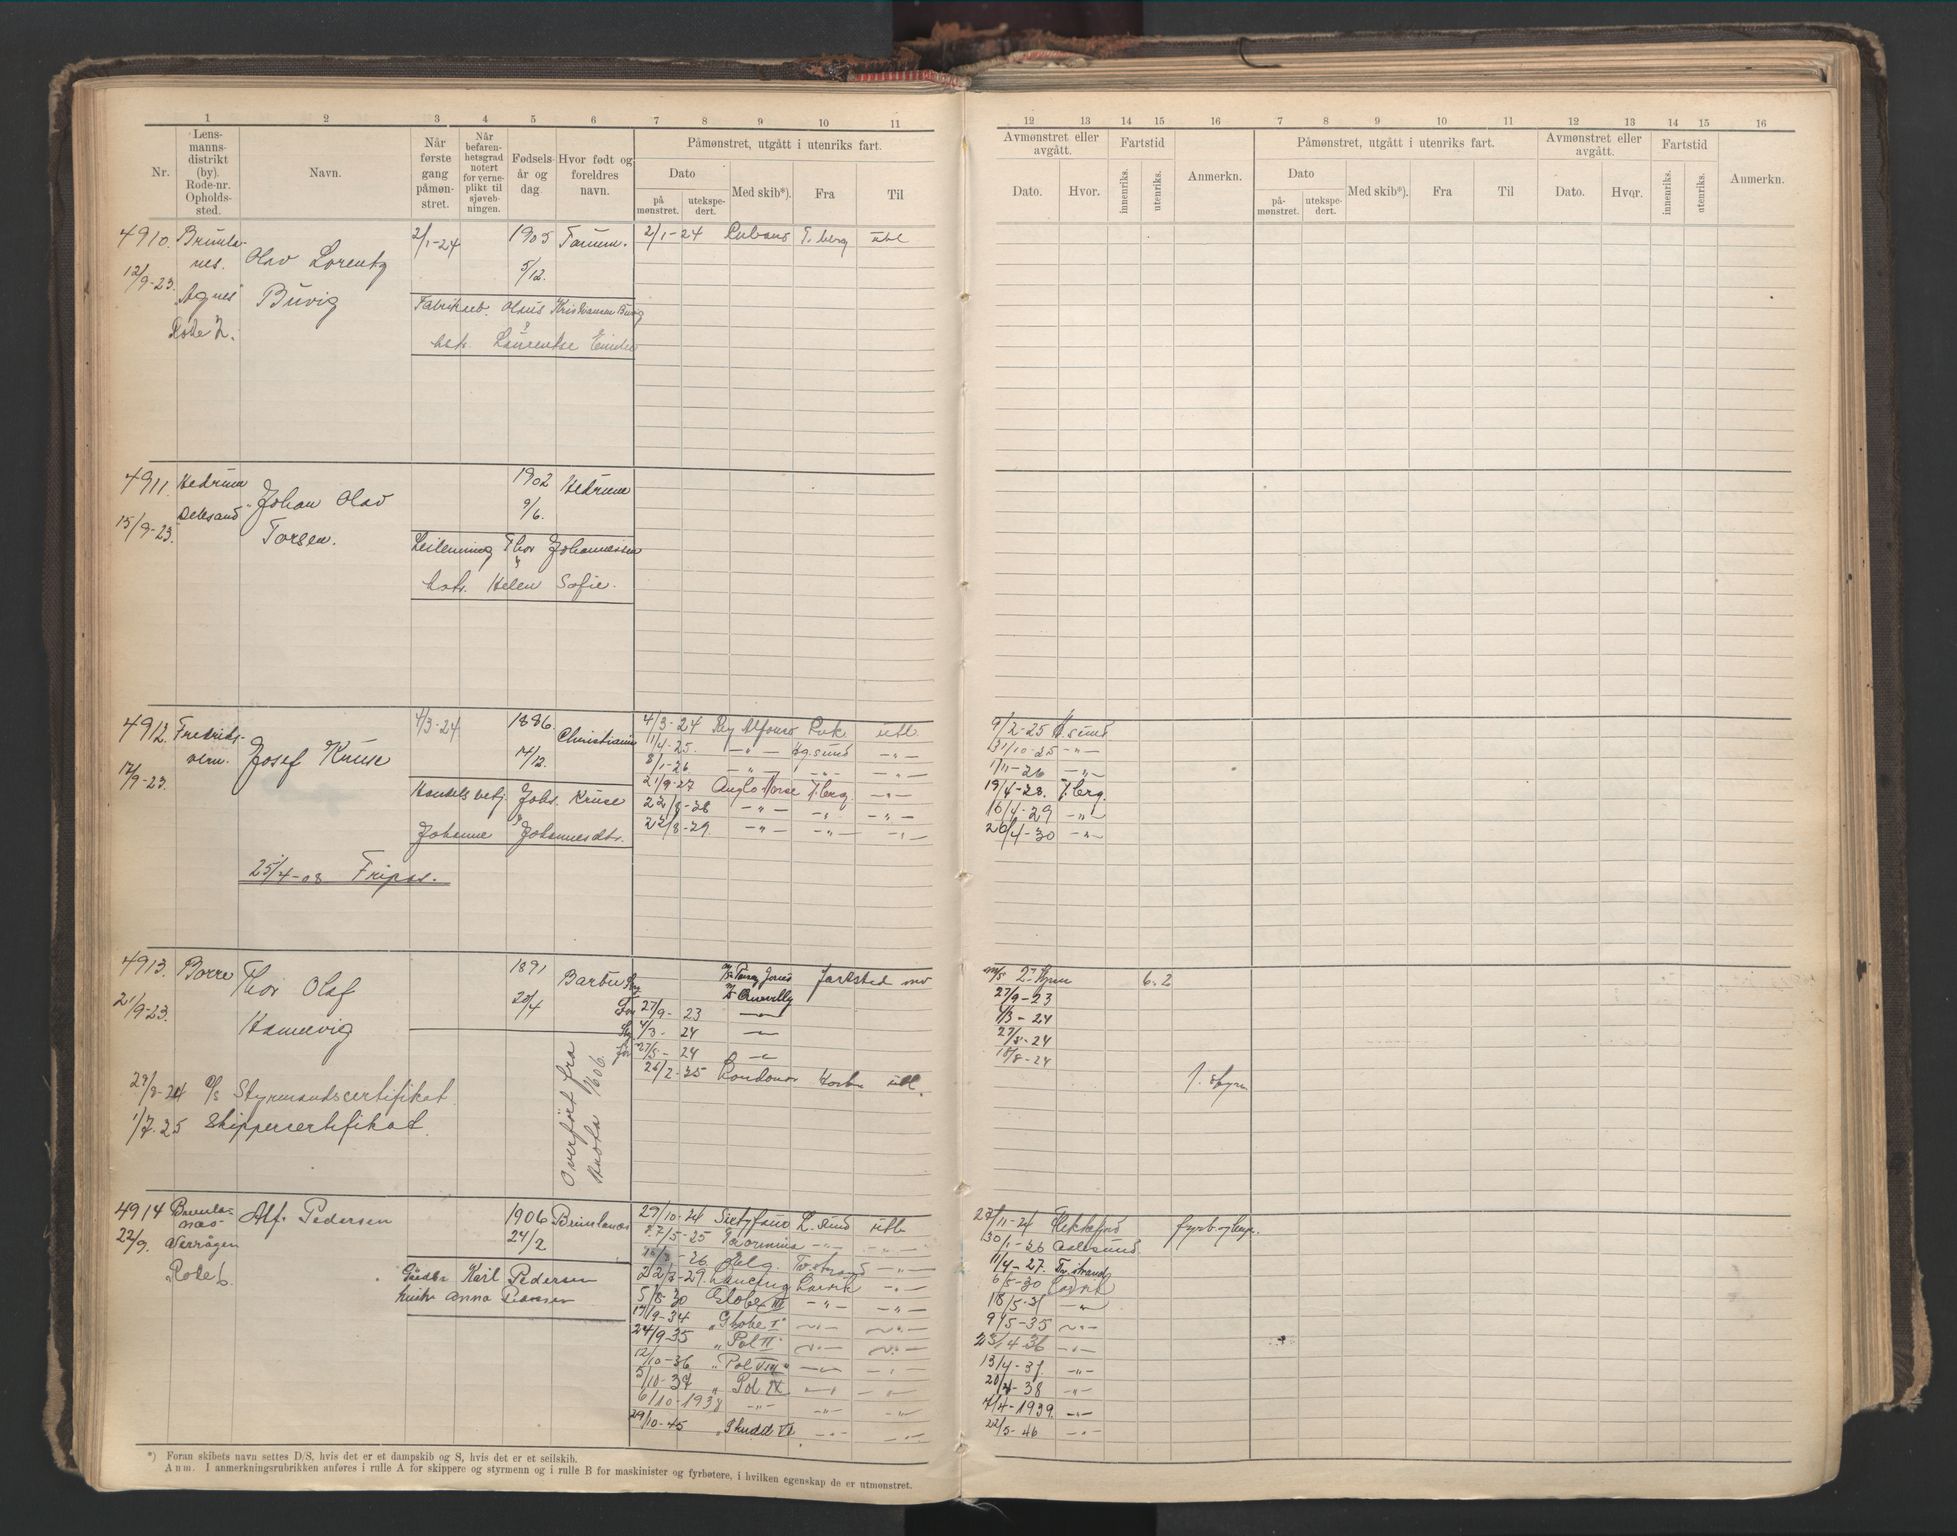 1 2 3 4 5 6 7 8 9 10 11 12 13 14 15 16 7 8 9 10 11 12 13 14 15 16
Nr.
Lens-
manns-
distrikt
(by).
Rode-nr.
Opholds-
sted.
Navn.
Når
første
gang
påmøn-
stret.
Når
befaren-
hetsgrad
notert
for verne-
plikt til
sjøveb-
ningen.
Fødsels-
år og
dag.
Hvor født og
foreldres
navn.
Påmønstret, utgått i utenriks fart.
Dato
på
mønstret.
utekspe-
dert.
Med skib*).
Fra
Til
Avmønstret eller
avgått.
Dato.
Hvor.
Fartstid
innenriks.
utenriks.
Anmerkn.
Påmønstret, utgått i utenriks fart.
Dato
på-
mønstret.
utekspe-
dert.
Med skib*).
Fra
Til
Avmønstret eller
avgått.
Dato.
Hvor.
Fartstid
innenriks.
utenriks.
Anmerkn.
4910. Brunla- 2/1-24 1905 2/1-24 Cubano T.berg utl
12/9-23. nes. Olav Lorentz 5/12.
"Agnes" Buvig
Rode 2.
Olaus Kristiansen Buvig
4911. Hedrum Johan Olav 1902 Hedrum
15/9-23. Torsen. 9/6.
Thor Johannessen
Helen Sofie.
4912. Fredriks- 4/3-24 1886. Christiania 4/3-24 Rey Alfonso utl 9/2-25
12/9-23. vern. Josef Kruse 14/12. 11/4-25. -"- Hg.sund -"- 31/10-25 -"-
8/1-26 -"- -"- -"- 1/11-26 -"-
Handelsbetj. Johs. Kruse 21/9-27 Anglo Norse T.berg. -"- 19/4-28. T.berg.
22/8-28 -"- -"- -"- 16/4-29 -"-
Johanne Johannesdtr. 22/8-29 -"- -"- -"- 20/4-30 -"-
25/4-08 Fripas.
4913. Borre Thor Olaf 1891 Barbu 6.2
21/9-23. Hannevig 20/4 27/9-23 27/9-23
4/3-24 4/3-24
27/5-24 27/5-24
18/8-24
26/2-25 Londonor utl. 1. styrm
29/8-24 Styrmandscertifikat
1/7-25 Skippercertifikat.
Overført fra
4914 Brunla- Alf. Pedersen 1906 Brunlanes 29/10-24 L.sund utl 27/11-24 Flekkefjord
22/9. nes- 24/2 27/5-25 Taormina -"- -"- 30/1-26 Aalesund
Nevrågen Tv.strand -"- 11/4-27. Tv.strand
Rode 6. Karl Pedersen 22/7-29. Lancing Larvik -"- 6/5-30 Larvik
Anna 5/8-30 Globe III -"- -"- 18/5-31 -"-
17/9-34 "Globe I" -"- -"- 9/5-35 -"-
24/9-35 "Pol II" -"- -"- 23/4-36 -"-
12/10-36 "Pol VIII" -"- -"- 13/4-37. -"-
5/10-37 "Pol IX -"- -"- 20/4-38 -"-
6/10-1938 -"- -"- -"- 4/4-1939. -"-
29/10-45 "Skudd VI -"- -"- 22/5-46 -"-
*) Foran skibets navn settes D/S, hvis det er et dampskib og S, hvis det er et seilskib.
Anm. I anmerkningsrubrikken anføres i rulle A for skippere og styrmenn og i rulle B for maskinister og fyrbøtere, i hvilken egenskap de er utmønstret.